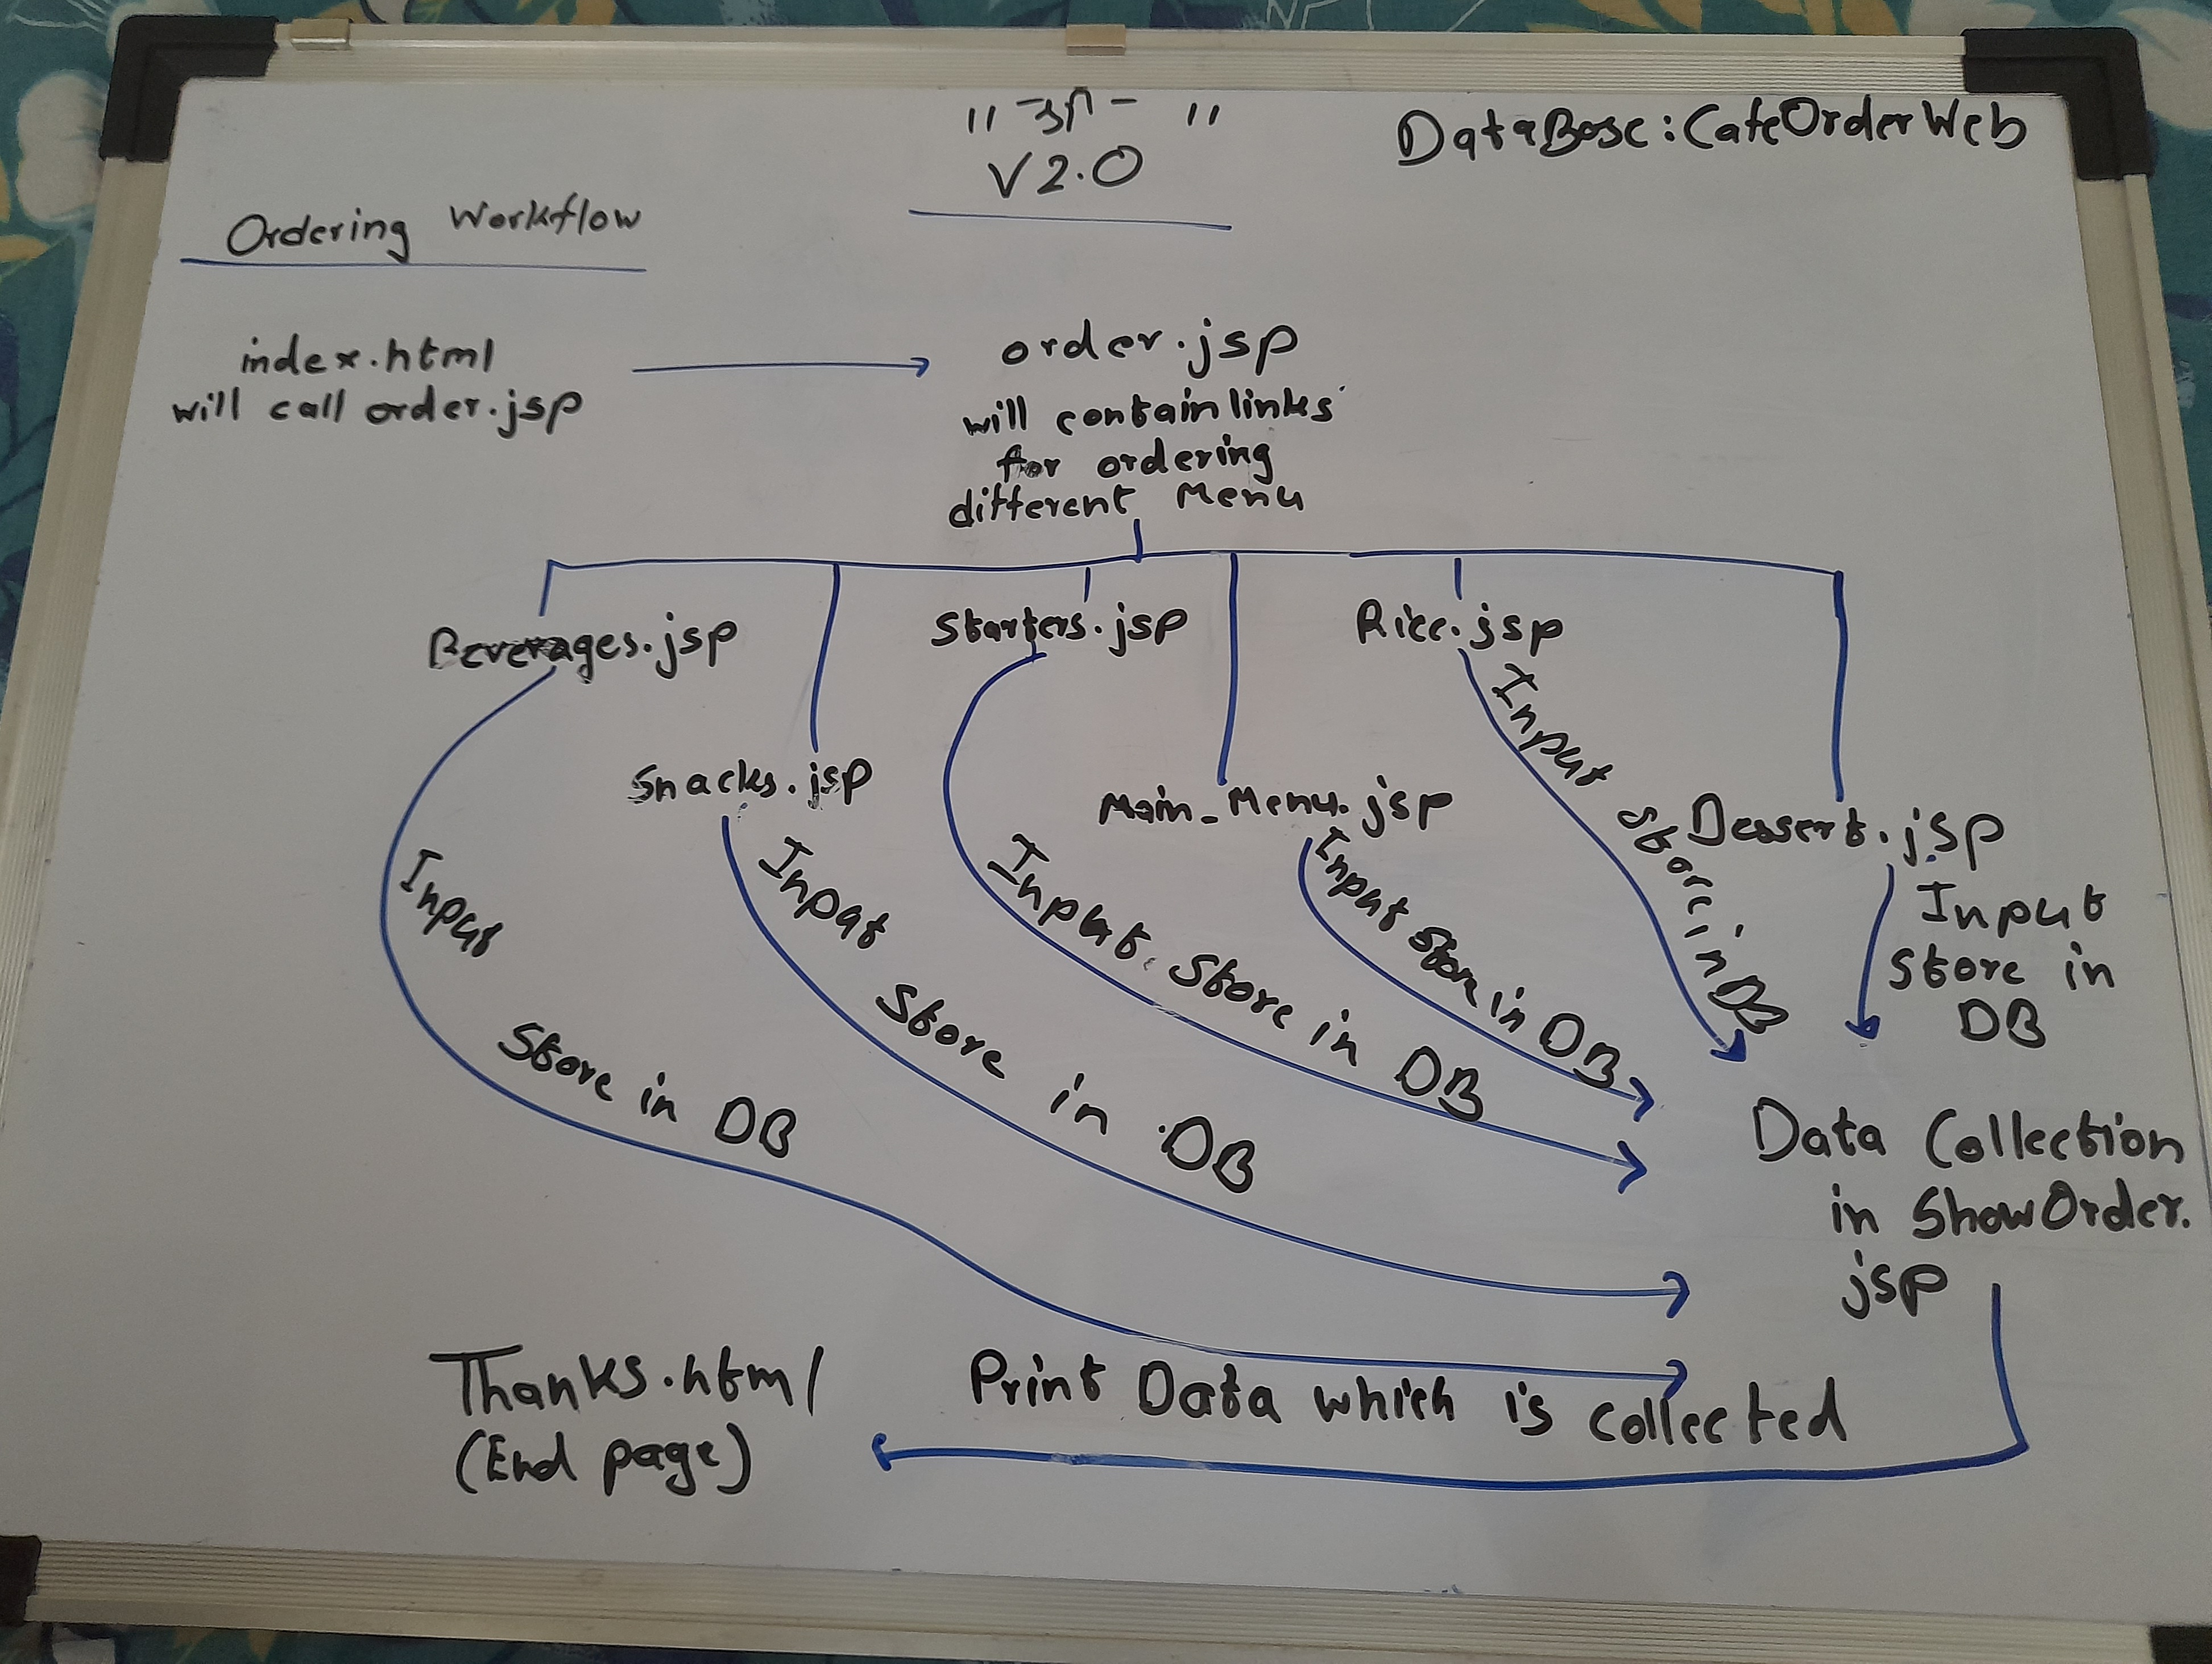 V2.0
DataBase: CafeOrderWeb
Ordering Workflow
index.html
will call order.jsp
order.jsp
will contain links
for ordering
different Menu
Beverages.jsp
Starters.jsp
Rice.jsp
Snacks.jsp
Main_Menu.jsp
Dessert.jsp
Input Store in DB
Input Store in DB
Input. Store in DB
Input Store in DB
Input Store in DB
Input
Store in
DB
Data Collection
in ShowOrder.
jsp
Print Data which is collected
Thanks.html
(End page)